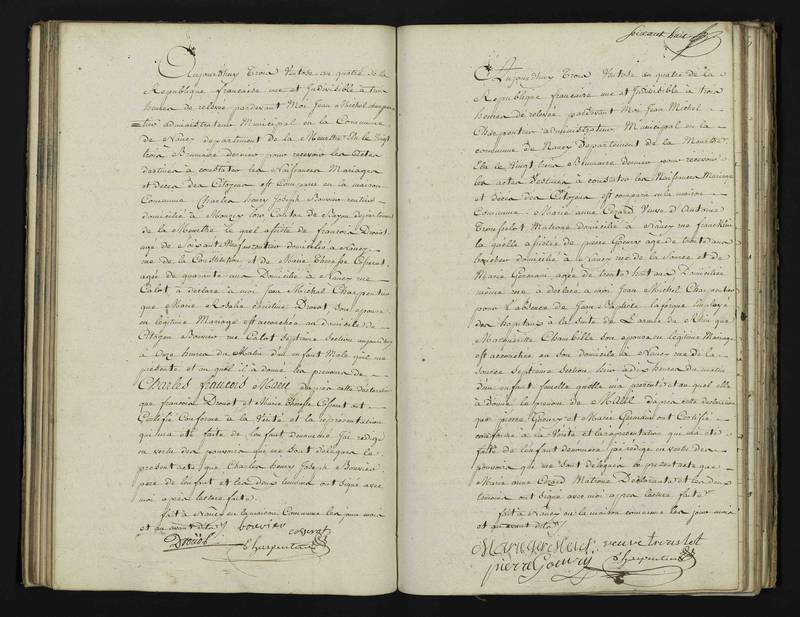 Aujourd'huy Trois Ventose an quatre de la
Republique française une et Indivisible à trois
heures de relevée pardevant Moi Jean Michel Charpen
tier administrateur Municipal en la Commune
de Nancy departement de la Meurthe Elu le vingt
trois Brumaire dernier pour recevoir les actes
destinés à constater les Naissances Mariages
et Decès des Citoyens est Comparu en la maison
Commune Charles henry Joseph Bouvier rentier
domicilié à Canton de departement
de la Meurthe le quel assisté de françois Drouot
agé de Soixante domicilié à Nancy
rue de la Constitution et de Marie Therese Cosserat
agée de quarante ans Domiciliée à Nancy rue
Callot à déclaré à moi Jean Michel Charpentier
que Marie Rosalie Christine Drouot, son épouse
en légitime Mariage est accouchée au domicile du
Citoyen Bouvier rue Callot septieme Section aujourd'huy
à Onze heures du Matin d'un enfant Male qu'il me
présente et au quel il a donné les prenoms de
Charles françois Marie d'après cette déclaration
que françois Drouot et Marie Therese Cosserat ont
Certifié Conforme à la Vérité et la représentation
qui m'a été faite de l'enfant denommé j'ai rédigé
en vertu des pouvoirs qui me sont délégués le
présent acte que Charles henry Joseph Bouvier
pere de l'enfant et les deux temoins ont signé avec
moi après lecture faite
fait à Nancy en la maison Commune les jour mois
et an avant dits
bouvier cosserat
Drouot Charpentier
soixante huit
Aujourd'huy Trois Ventose an quatre de la
République française une et Indivisible à trois
heures de relevée pardevant Moi Jean Michel
Charpentier administrateur Municipal en la
commune de Nancy Departement de la Meurthe
Elu le Vingt trois Brumaire dernier pour recevoir
les actes destinés à constater les Naissances Mariages
et Decès des Citoyens est comparu en la maison
Commune Marie anne Cézard Veuve d'Antoine
Trousselot Matrone domiciliée à Nancy rue franklin
la quelle assistée de pierre Goeury agé de trente ans
domicilié à Nancy rue de la Source et de
Marie Germain agée de trente huit ans Domiciliée
même rue a déclaré à moi Jean Michel Charpentier
pour l'absence de Jean Baptiste laforgue Employé
des hopitaux à la suite de L'armée du Rhin que
Chambille son épouse en légitime Mariage
est accouchée en son domicile à Nancy rue de la
Source septieme section, hier à dix heures du matin
d'un enfant femelle qu'elle m'a présenté et au quel elle
à donné le prenom de d'après cette déclaration
que pierre Goeury et Marie Germain ont Certifié
conforme à la Vérité et la représentation qui m'a été
faite de l'enfant denommé j'ai rédigé en vertu des
pouvoirs qui me sont délégués le présent acte que
Marie anne Cézard Matrone Déclarante et les deux
temoins ont signé avec moi après lecture faite
fait à Nancy en la maison commune les jour mois
et an avant dits
Marie veuve trouslot
pierre Goeury Charpentier